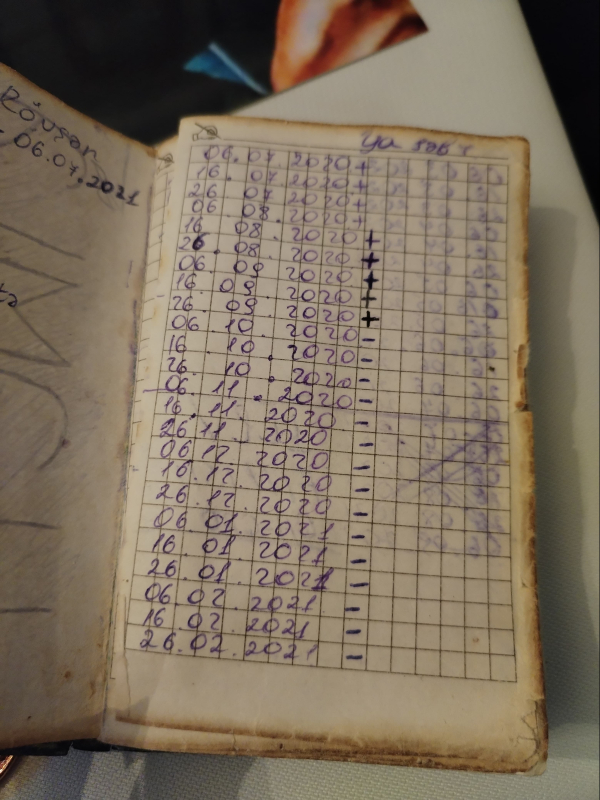 Rövşən
- 06.07.2021
06.07.2020 +
16.07.2020 +
26.07.2020 +
06.08.2020 +
16.08.2020 +
26.08.2020 +
06.09.2020 +
16.09.2020 +
26.09.2020 +
06.10.2020 -
16.10.2020 -
26.10.2020 -
06.11.2020 -
16.11.2020 -
26.11.2020 -
06.12.2020 -
16.12.2020 -
26.12.2020 -
06.01.2021 -
16.01.2021 -
26.01.2021 -
06.02.2021 -
16.02.2021 -
26.02.2021 -